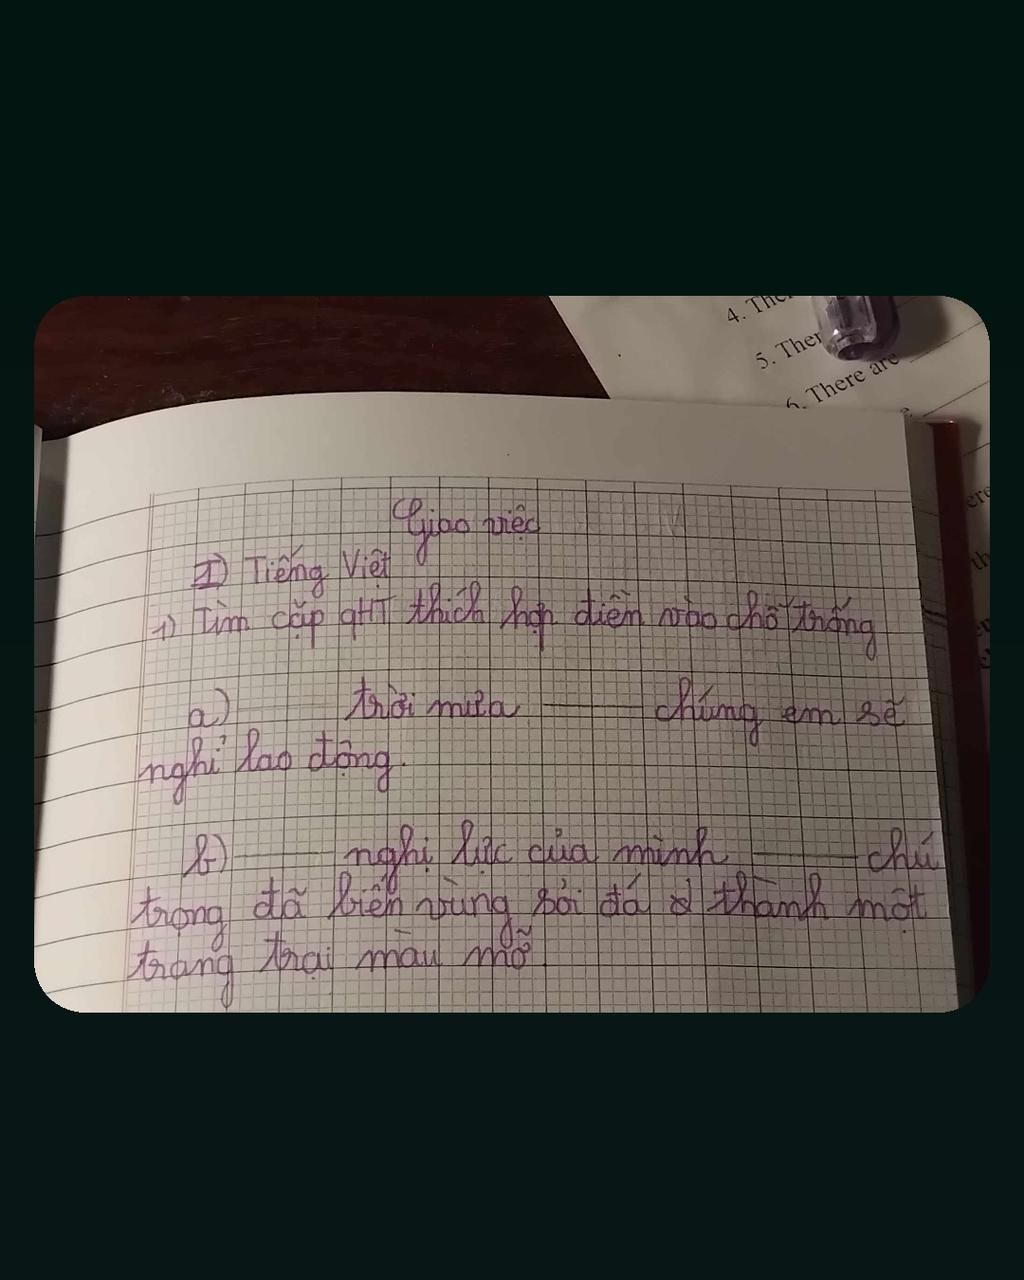 4. The
5. Ther
6. There are
Giao việc
I) Tiếng Việt
1) Tìm cặp qHT thích hợp điền vào chỗ trống
a) trời mưa ——— chúng em sẽ
nghỉ lao động.
b) ——— nghị lực của mình ——— chú
trọng đã biến vùng sỏi đá thành một
trang trại màu mỡ